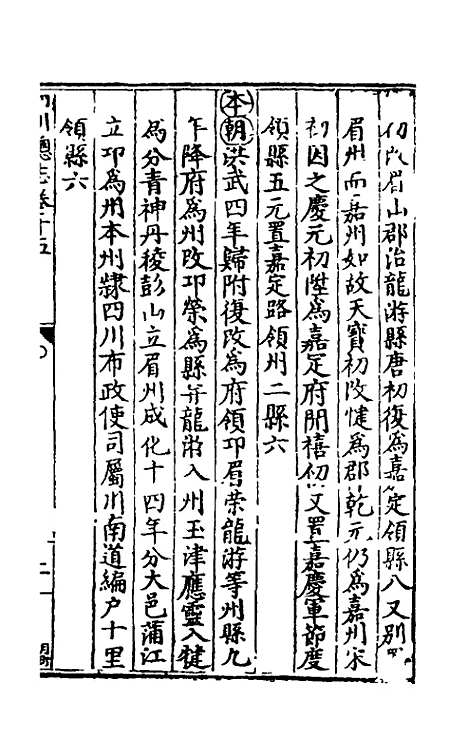 初改眉山郡治龍游縣唐初復爲嘉定領縣八又別
眉州而嘉州如故天寶初改犍爲郡乾元仍爲嘉州宋
初因之慶元初陞爲嘉定府開禧初又置嘉慶軍節度
領縣五元置嘉定路領州二縣六
本朝洪武四年歸附復改爲府領邛眉榮龍游等州縣九
年降府爲州改邛榮爲縣并龍游入州玉津應靈入犍
爲分青神丹稜彭山立眉州成化十四年分大邑蒲江
立邛爲州本州隸四川布政使司屬川南道編户十里
領縣六
四川總志卷十五